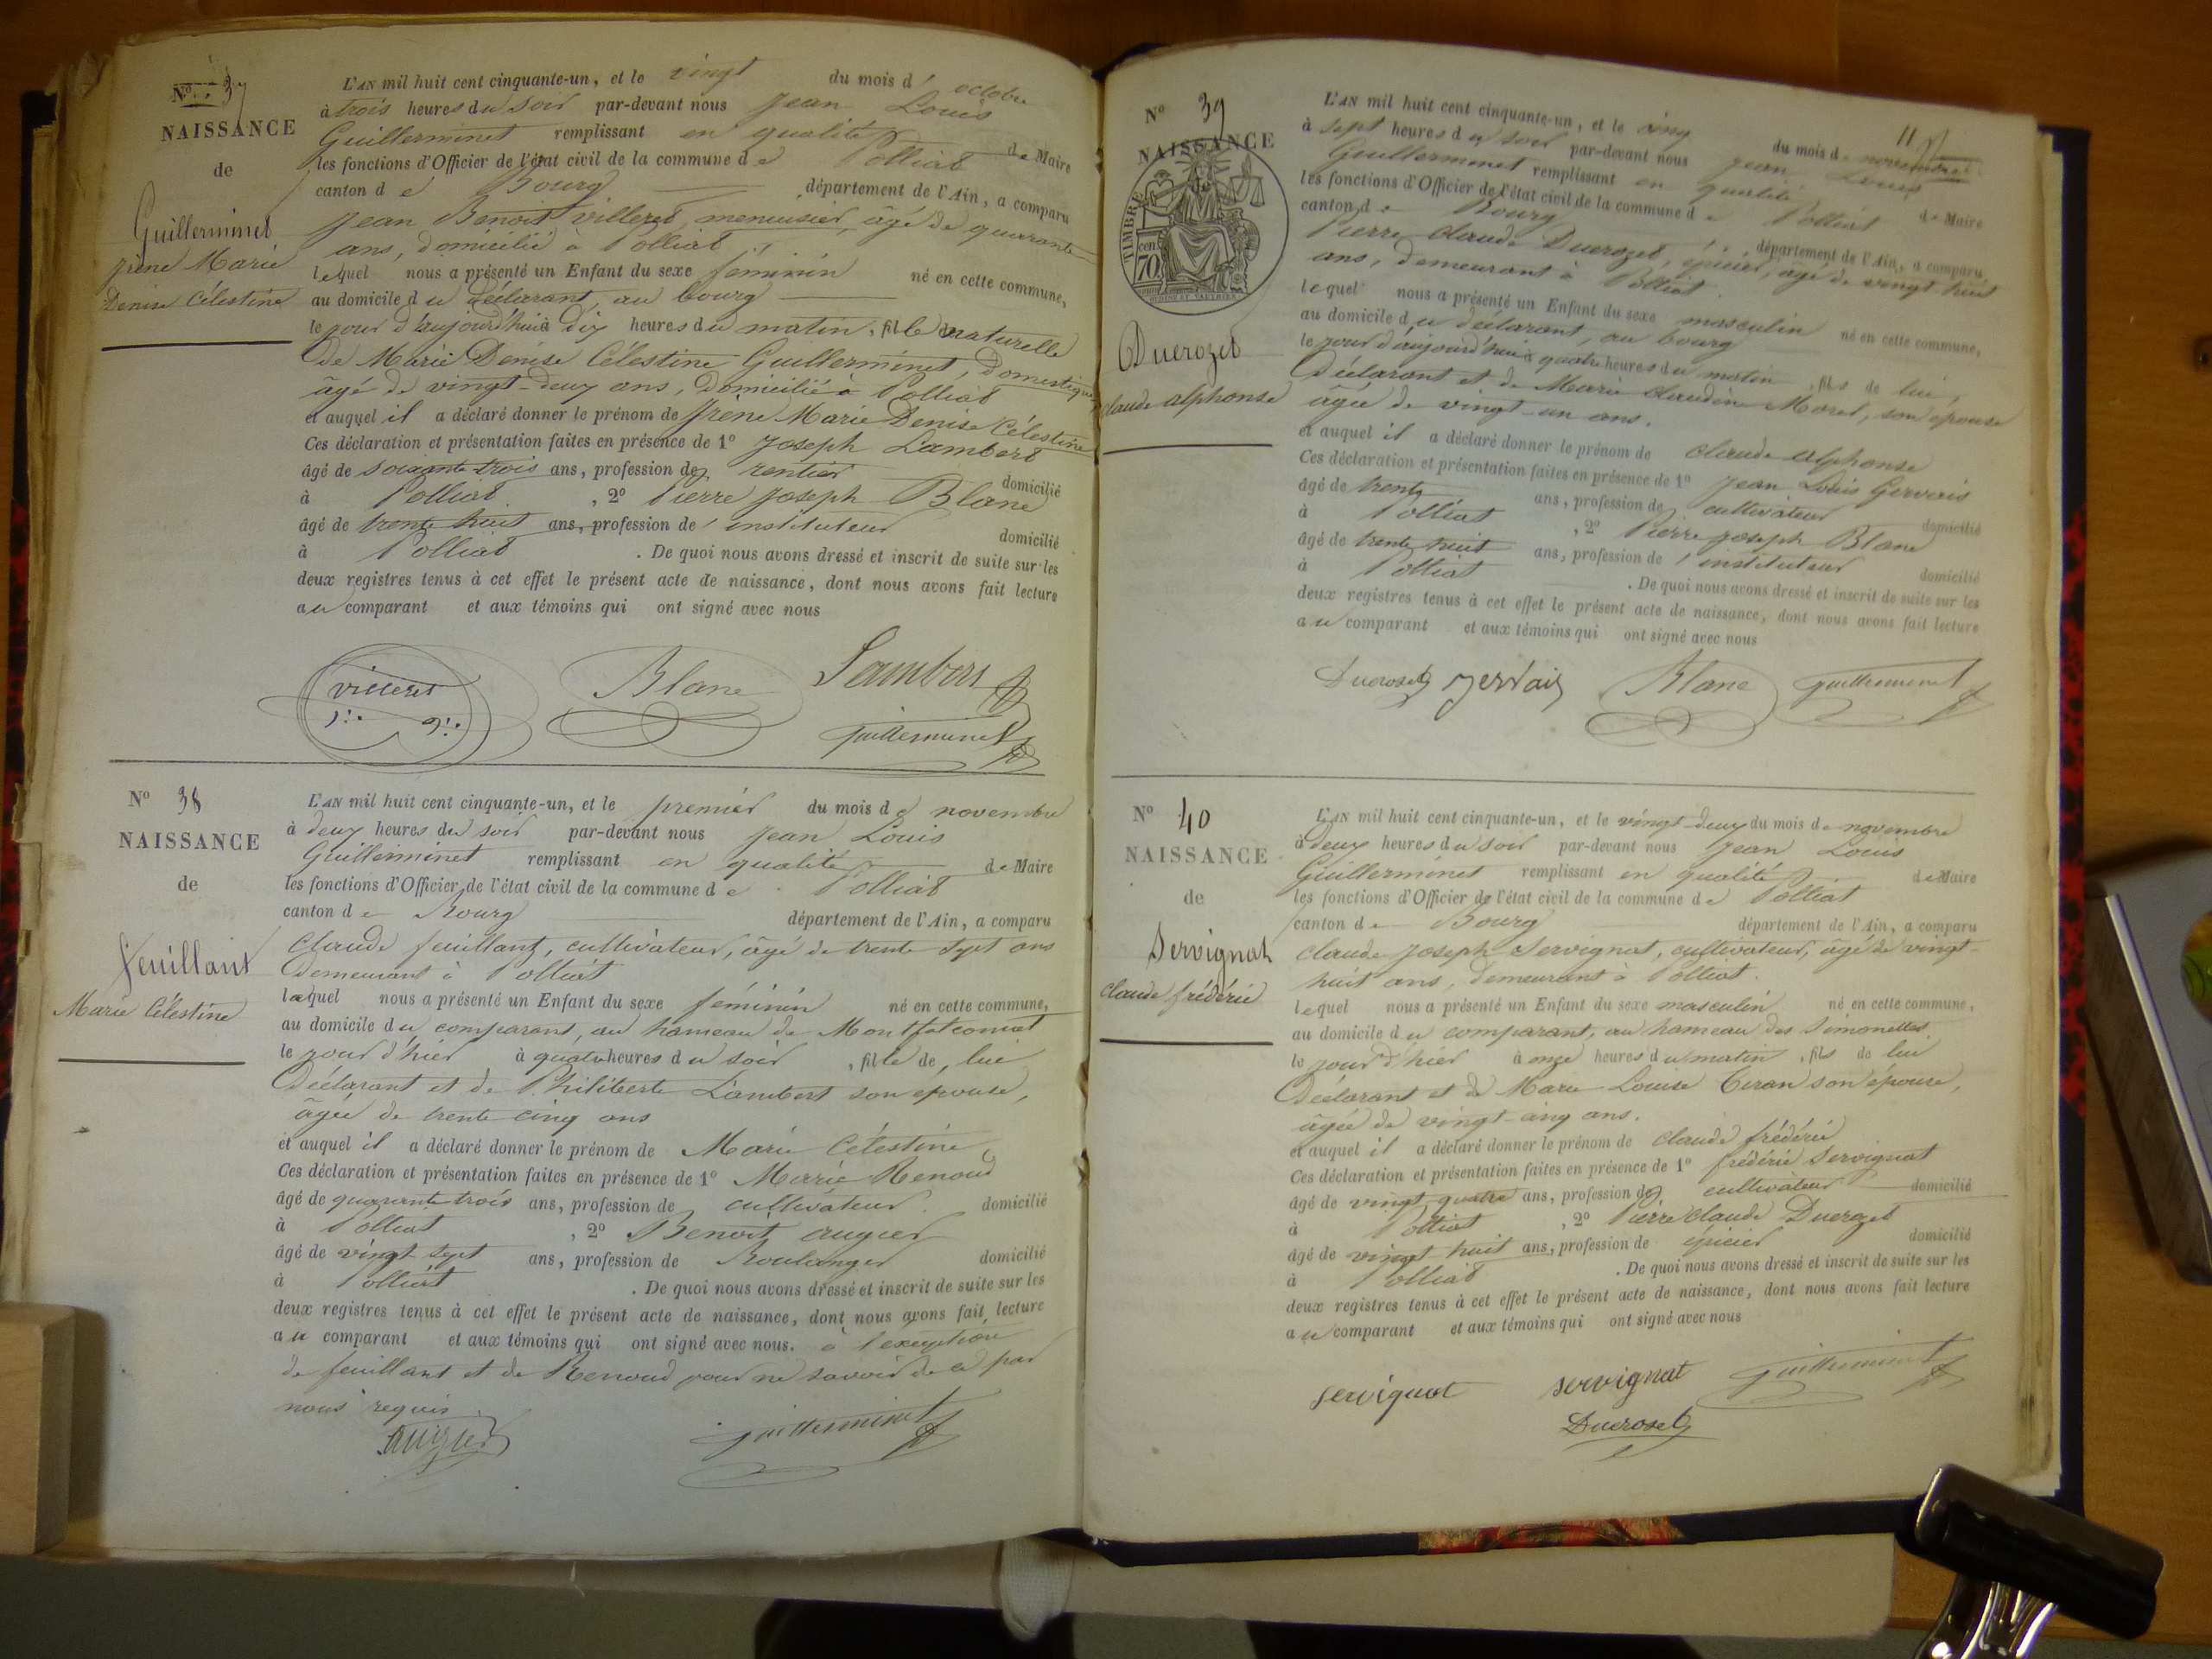 N° 37
NAISSANCE
de
Guillerminet
Irène Marie
Denise Célestine
L'AN mil huit cent cinquante-un, et le vingt du mois d'octobre
à trois heures du soir par-devant nous Jean Louis
Guillerminet remplissant en qualité de Maire
les fonctions d'Officier de l'état civil de la commune de Polliat
canton de Bourg département de l'Ain, a comparu
Jean Benoit Villeret, menuisier, âgé de quarante
ans, domicilié à Polliat
lequel nous a présenté un Enfant du sexe féminin né en cette commune,
au domicile du déclarant, au bourg
le jour d'aujourd'hui à dix heures du matin, fille naturelle
de Marie Denise Célestine Guillerminet, domestique
âgé de vingt-deux ans, domiciliée à Polliat
et auquel il a déclaré donner le prénom de Irène Marie Denise Célestine
Ces déclaration et présentation faites en présence de 1° Joseph Lambert
âgé de soixante trois ans, profession de rentier domicilié
à Polliat, 2° Pierre Joseph Blanc
âgé de trente huit ans, profession d'instituteur domicilié
à Polliat. De quoi nous avons dressé et inscrit de suite sur les
deux registres tenus à cet effet le présent acte de naissance, dont nous avons fait lecture
au comparant et aux témoins qui ont signé avec nous
Villeret Blanc Lambert
Guillerminet
N° 38
NAISSANCE
de
Feuillant
Marie Célestine
L'AN mil huit cent cinquante-un, et le premier du mois de novembre
à deux heures du soir par-devant nous Jean Louis
Guillerminet remplissant en qualité de Maire
les fonctions d'Officier de l'état civil de la commune de Polliat
canton de Bourg département de l'Ain, a comparu
Claude feuillant, cultivateur, âgé de trente sept ans
demeurant à Polliat
lequel nous a présenté un Enfant du sexe féminin né en cette commune,
au domicile du comparant, au hameau de Montfalconnat
le jour d'hier à quatre heures du soir, fille de, lui
Déclarant et de Philiberte Lambert son épouse,
âgée de trente cinq ans
et auquel il a déclaré donner le prénom de Marie Célestine
Ces déclaration et présentation faites en présence de 1° Renoud
âgé de quarante trois ans, profession de cultivateur domicilié
à Polliat, 2° Benoit augier
âgé de vingt-sept ans, profession de Boulanger domicilié
à Polliat. De quoi nous avons dressé et inscrit de suite sur les
deux registres tenus à cet effet le présent acte de naissance, dont nous avons fait lecture
au comparant et aux témoins qui ont signé avec nous. à l'exception
de feuillant et de Renoud pour ne savoir de ce par
nous requis
augier Guillerminet
11
N° 39
NAISSANCE
de
TIMBRE
70 cen
Ducrozet
Claude alphonse
L'AN mil huit cent cinquante-un, et le cinq du mois de novembre
à sept heures du soir par-devant nous Jean Louis
Guillerminet remplissant en qualité de Maire
les fonctions d'Officier de l'état civil de la commune de Polliat
canton de Bourg département de l'Ain, a comparu
Pierre Claude Ducrozet, épicier, âgé de vingt huit
ans, demeurant à Polliat.
lequel nous a présenté un Enfant du sexe masculin né en cette commune,
au domicile du déclarant, au bourg
le jour d'aujourd'hui à quatre heures du matin, fils de lui,
Déclarant et de Marie Claudine Morel, son épouse
âgée de vingt-un ans.
et auquel il a déclaré donner le prénom de Claude alphonse
Ces déclaration et présentation faites en présence de 1° Jean Louis Gervais
âgé de trente ans, profession de cultivateur domicilié
à Polliat, 2° Pierre Joseph Blanc
âgé de trente huit ans, profession d'instituteur domicilié
à Polliat. De quoi nous avons dressé et inscrit de suite sur les
deux registres tenus à cet effet le présent acte de naissance, dont nous avons fait lecture
au comparant et aux témoins qui ont signé avec nous
Ducrozet gervais Blanc Guillerminet
N° 40
NAISSANCE
de
Servignat
claude frédéric
L'AN mil huit cent cinquante-un, et le vingt-deux du mois de novembre
à deux heures du soir par-devant nous Jean Louis
Guillerminet remplissant en qualité de Maire
les fonctions d'Officier de l'état civil de la commune de Polliat
canton de Bourg département de l'Ain, a comparu
Claude Joseph Servignat, cultivateur, âgé de vingt-
huit ans, demeurant à Polliat.
lequel nous a présenté un Enfant du sexe masculin né en cette commune,
au domicile du comparant, au hameau des Simonettes
le jour d'hier à onze heures du matin, fils de lui
Déclarant et de Marie Louise son épouse,
âgée de vingt-cinq ans.
et auquel il a déclaré donner le prénom de Claude frédéric
Ces déclaration et présentation faites en présence de 1° frédéric Servignat
âgé de vingt quatre ans, profession de cultivateur domicilié
à Polliat, 2° Pierre claude Ducrozet
âgé de vingt huit ans, profession de épicier domicilié
à Polliat. De quoi nous avons dressé et inscrit de suite sur les
deux registres tenus à cet effet le présent acte de naissance, dont nous avons fait lecture
au comparant et aux témoins qui ont signé avec nous
Servignat servignat Guillerminet
Ducrozet